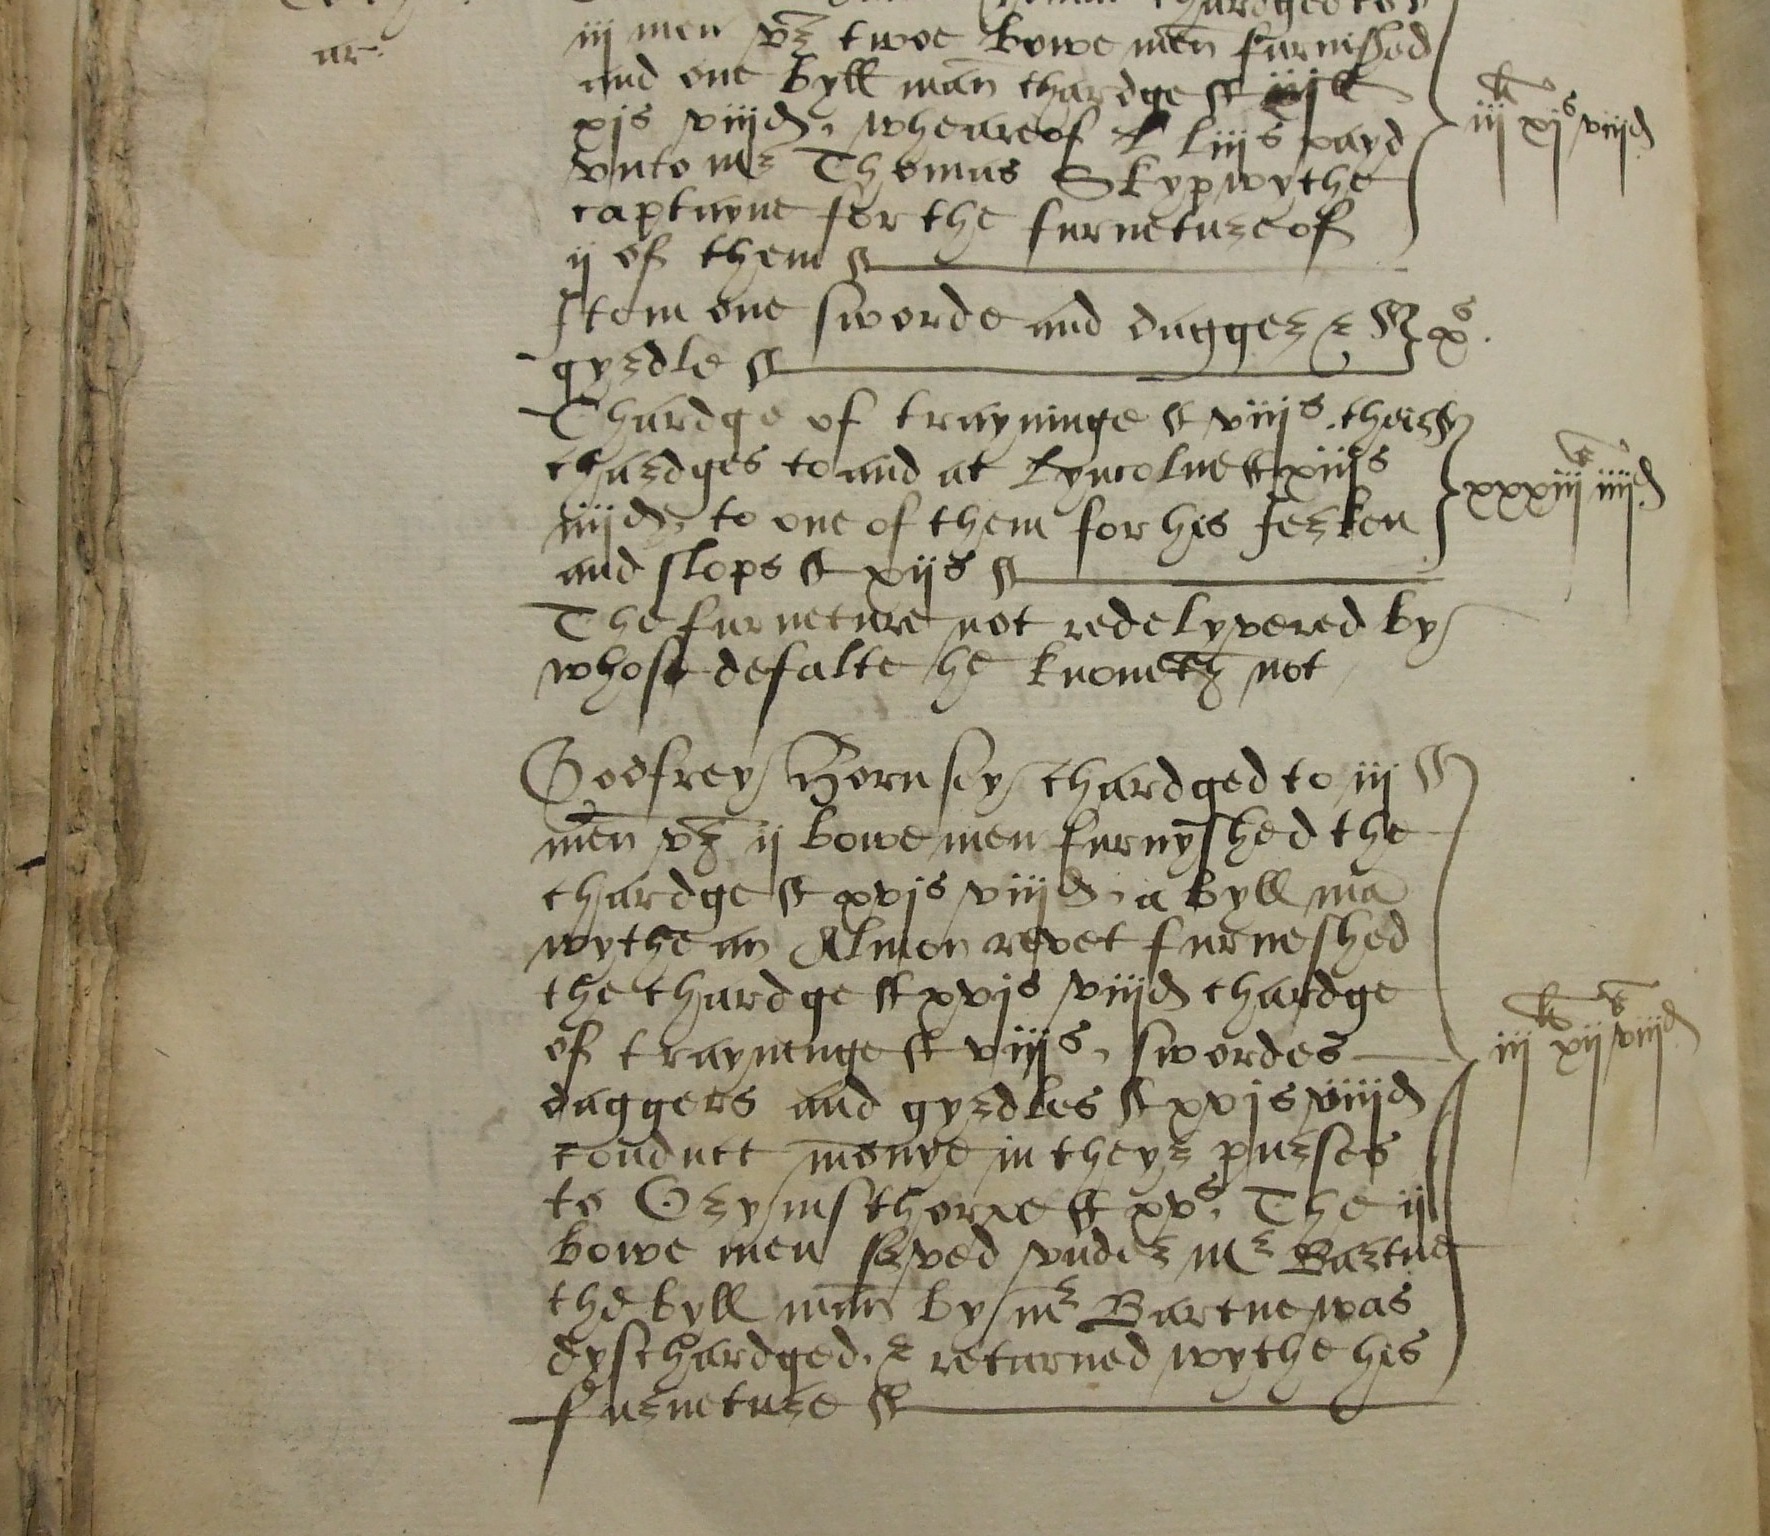 chardged to
ar.
iij men vz twoe bowe men furnished
and one byll man chardge iijli
xjs viijd, wheareof liijs payd
vnto mr Thomas Skypwythe
captayne for the furneture of
ij of them
iijli xjs viijd
Item one sworde and dagger &
gyrdle
xs.
Chardge of trayninge viijs. theis
chardges to and at Lyncolne xiijs
iiijd, to one of them for his Jerken
and slops xijs
xxxiijs iiijd
The furneture not redelyvered by
whose defalte he knoweth not
Godfrey Hornsey chardged to iij
men vz ij bowe men furnyshed the
chardge xvjs viijd, a byll man
wythe an Almon revet furneshed
the chardge xvjs viijd chardge
of traynenge viijs, swordes
daggers and gyrdles xvjs viijd
conduct monye in theyr purses
to Grymsthorpe xvs. The ij
bowe men served vnder mr Bartue
the byll man by mr Bartue was
dyschardged. & returned wythe his
furneture
iijli xijs viijd